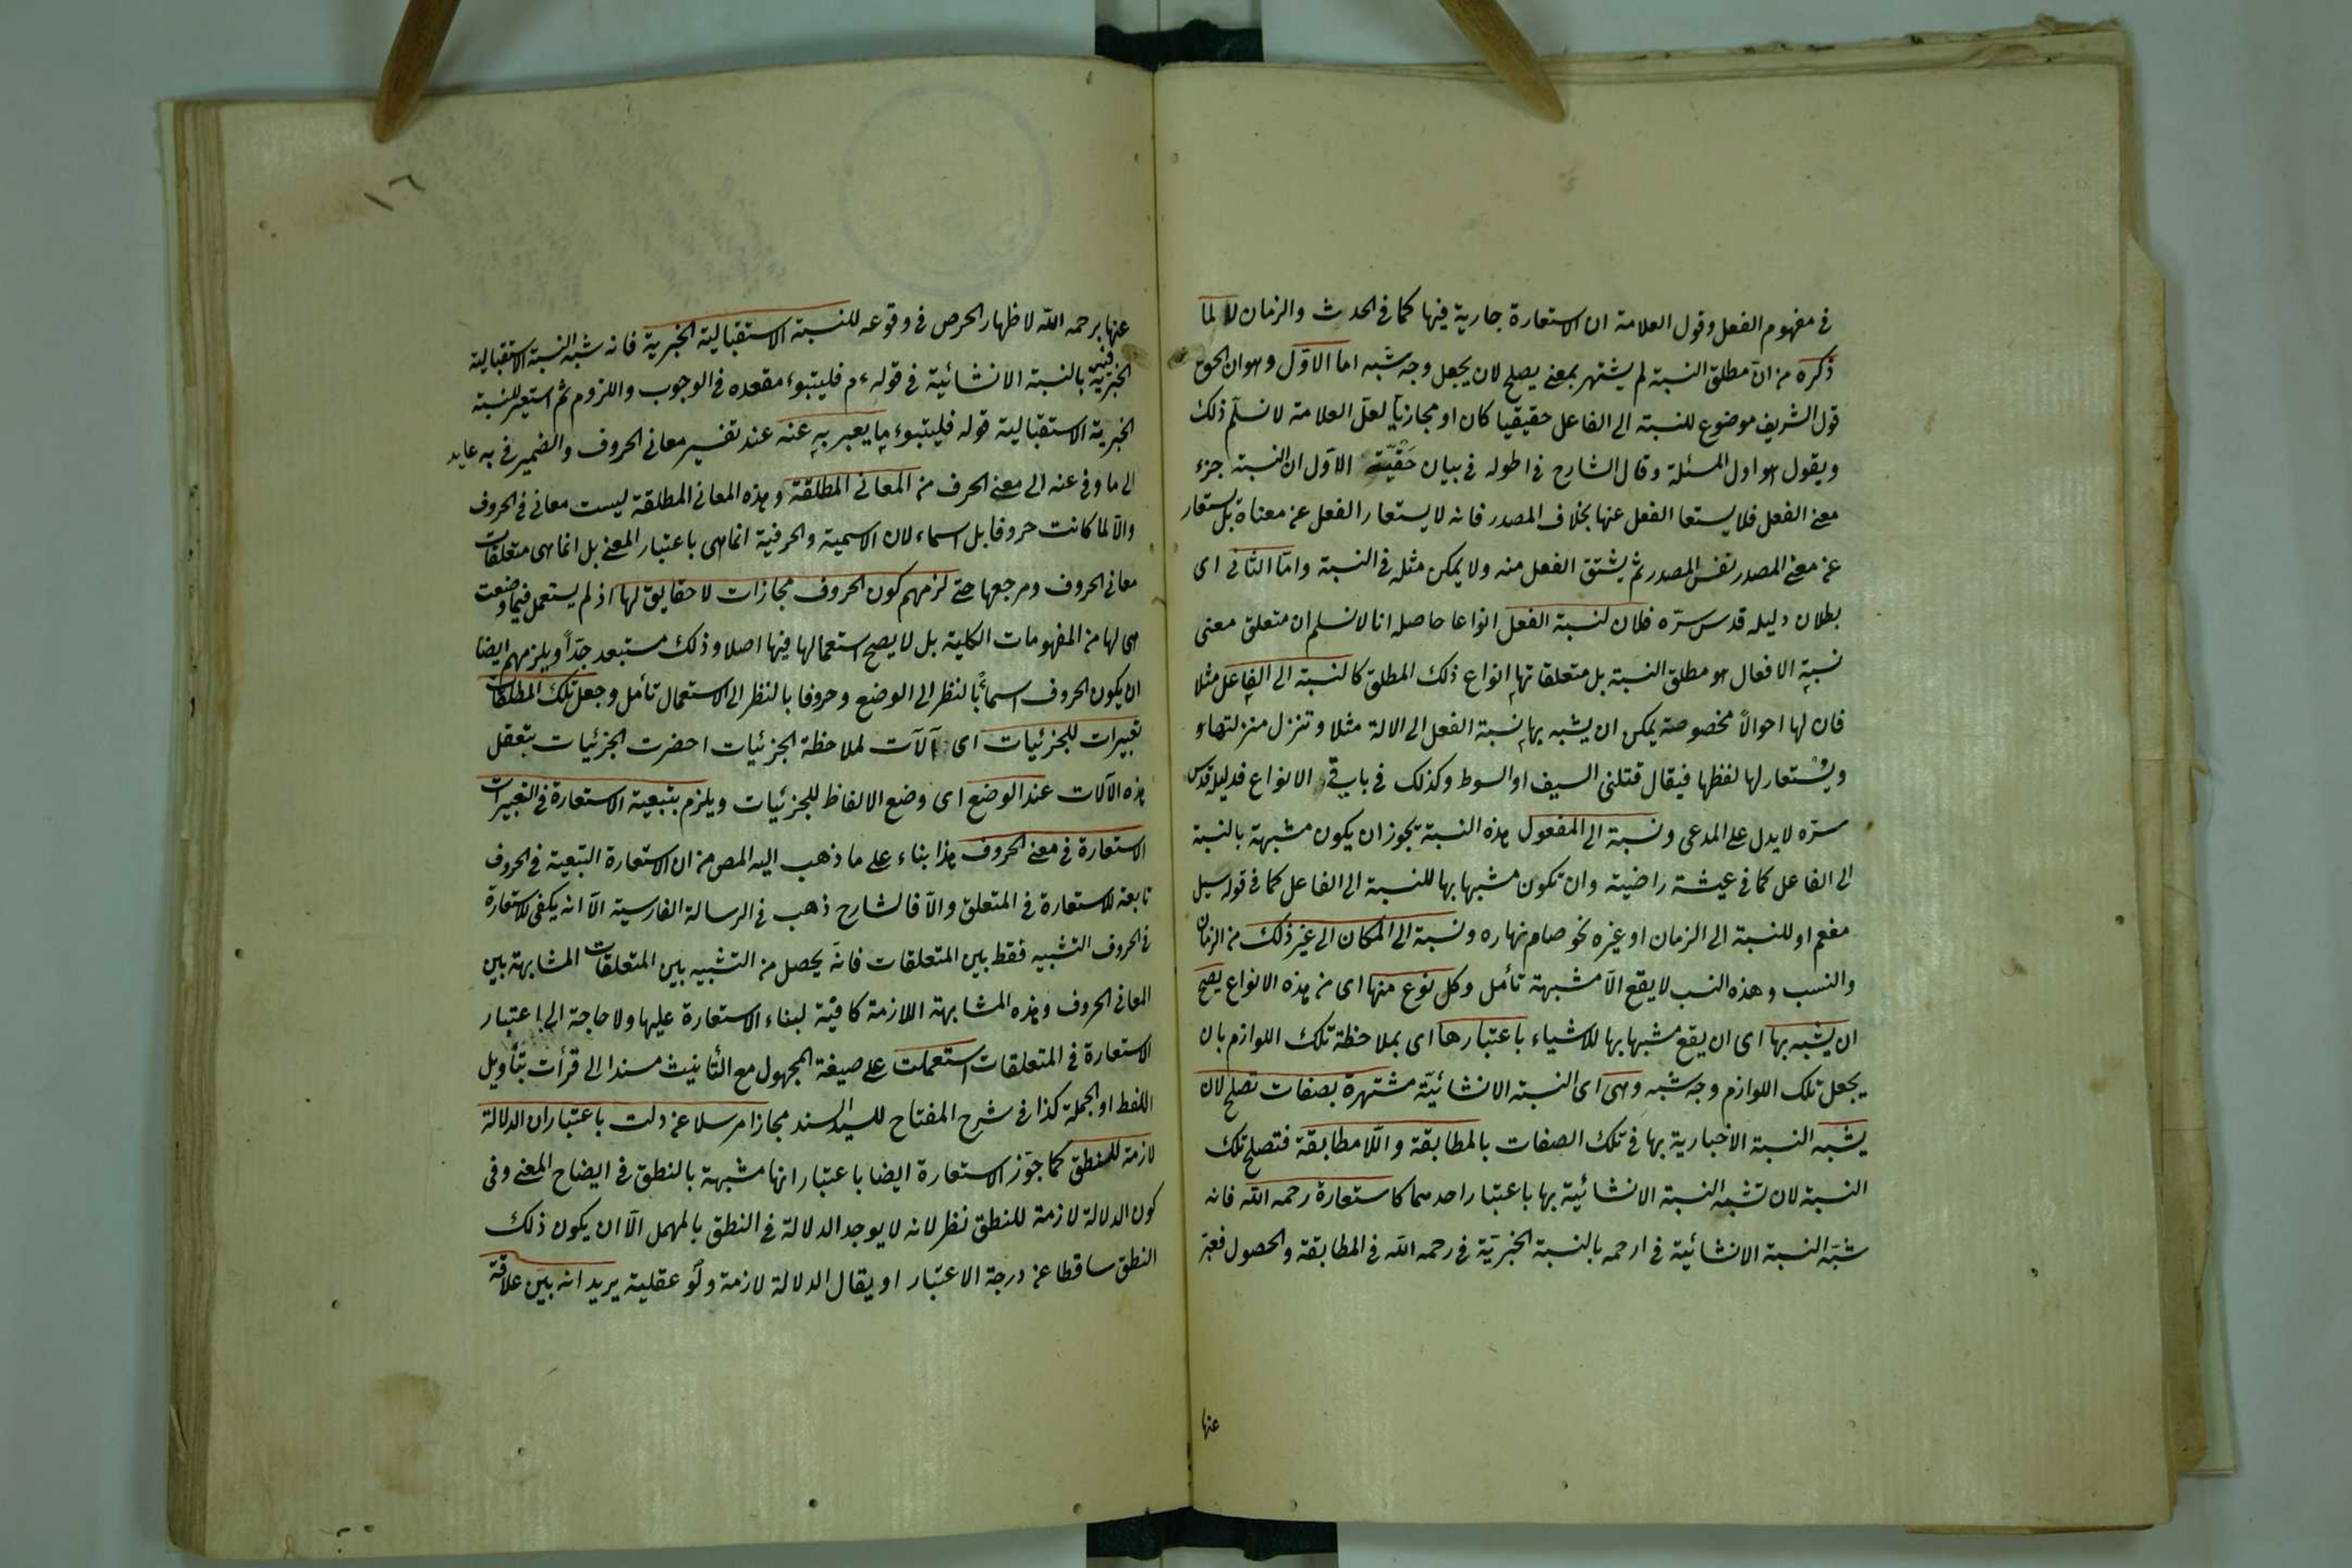 في مفهوم الفعل وقول العلامة ان الاستعارة جارية فيها كما في الحدث والزمان لا لما
ذكره من ان مطلق النسبة لم يشتهر بمعنى يصلح لان يجعل وجه شبه اما الاول وهو ان الحق
قول الشريف موضوع للنسبة الى الفاعل حقيقيا كان او مجازيا لعل العلامة لا نسلم ذلك
ويقول هو اول المسئلة وقال الشارح في اطوله في بيان حقية الاول ان النسبة جزء
معنى الفعل فلا يستعا الفعل عنها بخلاف المصدر فانه لا يستعار الفعل عن معناه بل يستعار
عن معنى المصدر نفس المصدر ثم يشتق الفعل منه ولا يمكن مثله في النسبة واما الثاني اى
بطلان دليله قدس سره فلان لنسبة الفعل انواعا حاصله انا لا نسلم ان متعلق معنى
نسبة الافعال هو مطلق النسبة بل متعلقاتها انواع ذلك المطلق كالنسبة الى الفاعل مثلا
فان لها احوالا مخصوصة يمكن ان يشبه بها نسبة الفعل الى الالة مثلا وتنزل منزلتها و
ويستعار لها لفظها فيقال قتلنى السيف او السوط وكذلك في باقي الانواع فدليله قدس
سره لا يدل على المدعى ونسبة الى المفعول هذه النسبة يجوز ان يكون مشبهة بالنسبة
الى الفاعل كما في عيشة راضية وان تكون مشبها بها للنسبة الى الفاعل كما في قوله سيل
مفعم او للنسبة الى الزمان او غيره نحو صام نهاره ونسبة الى المكان الى غير ذلك من الزمان
والنسب وهذه النسب لا يقع الا مشبهة تأمل وكل نوع منها اى من هذه الانواع يصح
ان يشبه بها اى ان يقع مشبها بها للاشياء باعتبارها اى بملاحظة تلك اللوازم بان
يجعل تلك اللوازم وجه شبه وهى اى النسبة الانشائية مشتهرة بصفات تصلح لان
يشبه النسبة الاخبارية بها في تلك الصفات بالمطابقة واللامطابقة فتصلح تلك
النسبة لان تشبه النسبة الانشائية بها باعتبار احدهما كاستعارة رحمه الله فانه
شبه النسبة الانشائية في ارحمه بالنسبة الخبرية في رحمه الله في المطابقة والحصول فعبر
عنها
١٦
عنها برحمه الله لاظهار الحرص في وقوعه للنسبة الاستقبالية الخبرية فانه شبه النسبة الاستقبالية
الخبرية بالنسبة الانشائية في قوله ء م فليتبوء مقعده في الوجوب واللزوم ثم استعير للنسبة
الخبرية الاستقبالية قوله فليتبوء ما يعبر به عنه عند تفسير معانى الحروف والضمير في به عايد
الى ما وفي عنه الى معنى الحرف من المعانى المطلقة وهذه المعانى المطلقة ليست معانى في الحروف
والا لما كانت حروفا بل اسماء لان الاسمية والحرفية انما هى باعتبار المعنى بل انما هى متعلقات
معانى الحروف ومرجعها حتى لزمهم كون الحروف مجازات لا حقايق لها اذ لم يستعمل فيما وضعت
هى لها من المفهومات الكلية بل لا يصح استعمالها فيها اصلا وذلك مستبعد جدا ويلزمهم ايضا
ان يكون الحروف اسماء بالنظر الى الوضع وحروفا بالنظر الى الاستعمال تأمل وجعل تلك المطلقات
تعبيرات للجزئيات اى آلات لملاحظة الجزئيات احضرت الجزئيات بتعقل
هذه الآلات عند الوضع اى وضع الالفاظ للجزئيات ويلزم بتبعية الاستعارة في التعبيرات
الاستعارة في معنى الحروف هذا بناء على ما ذهب اليه المص من ان الاستعارة التبعية في الحروف
تابعة للاستعارة في المتعلق والا فالشارح ذهب في الرسالة الفارسية الا انه يكفى للاستعارة
في الحروف التشبيه فقط بين المتعلقات فانه يحصل من التشبيه بين المتعلقات المشابهة بين
المعانى الحروف وهذه المشابهة اللازمة كافية لبناء الاستعارة عليها ولا حاجة الى اعتبار
الاستعارة في المتعلقات استعملت على صيغة المجهول مع التأنيث مسندا الى قرأت بتأويل
اللفظ او الجملة كذا في شرح المفتاح للسيد السند مجازا مرسلا عن دلت باعتبار ان الدلالة
لازمة للنطق كما جوز الاستعارة ايضا باعتبار انها مشبهة بالنطق في ايضاح المعنى وفي
كون الدلالة لازمة للنطق نظر لانه لا يوجد الدلالة في النطق بالمهمل الا ان يكون ذلك
النطق ساقطا عن درجة الاعتبار او يقال الدلالة لازمة ولو عقلية يريد انه بين علاقة